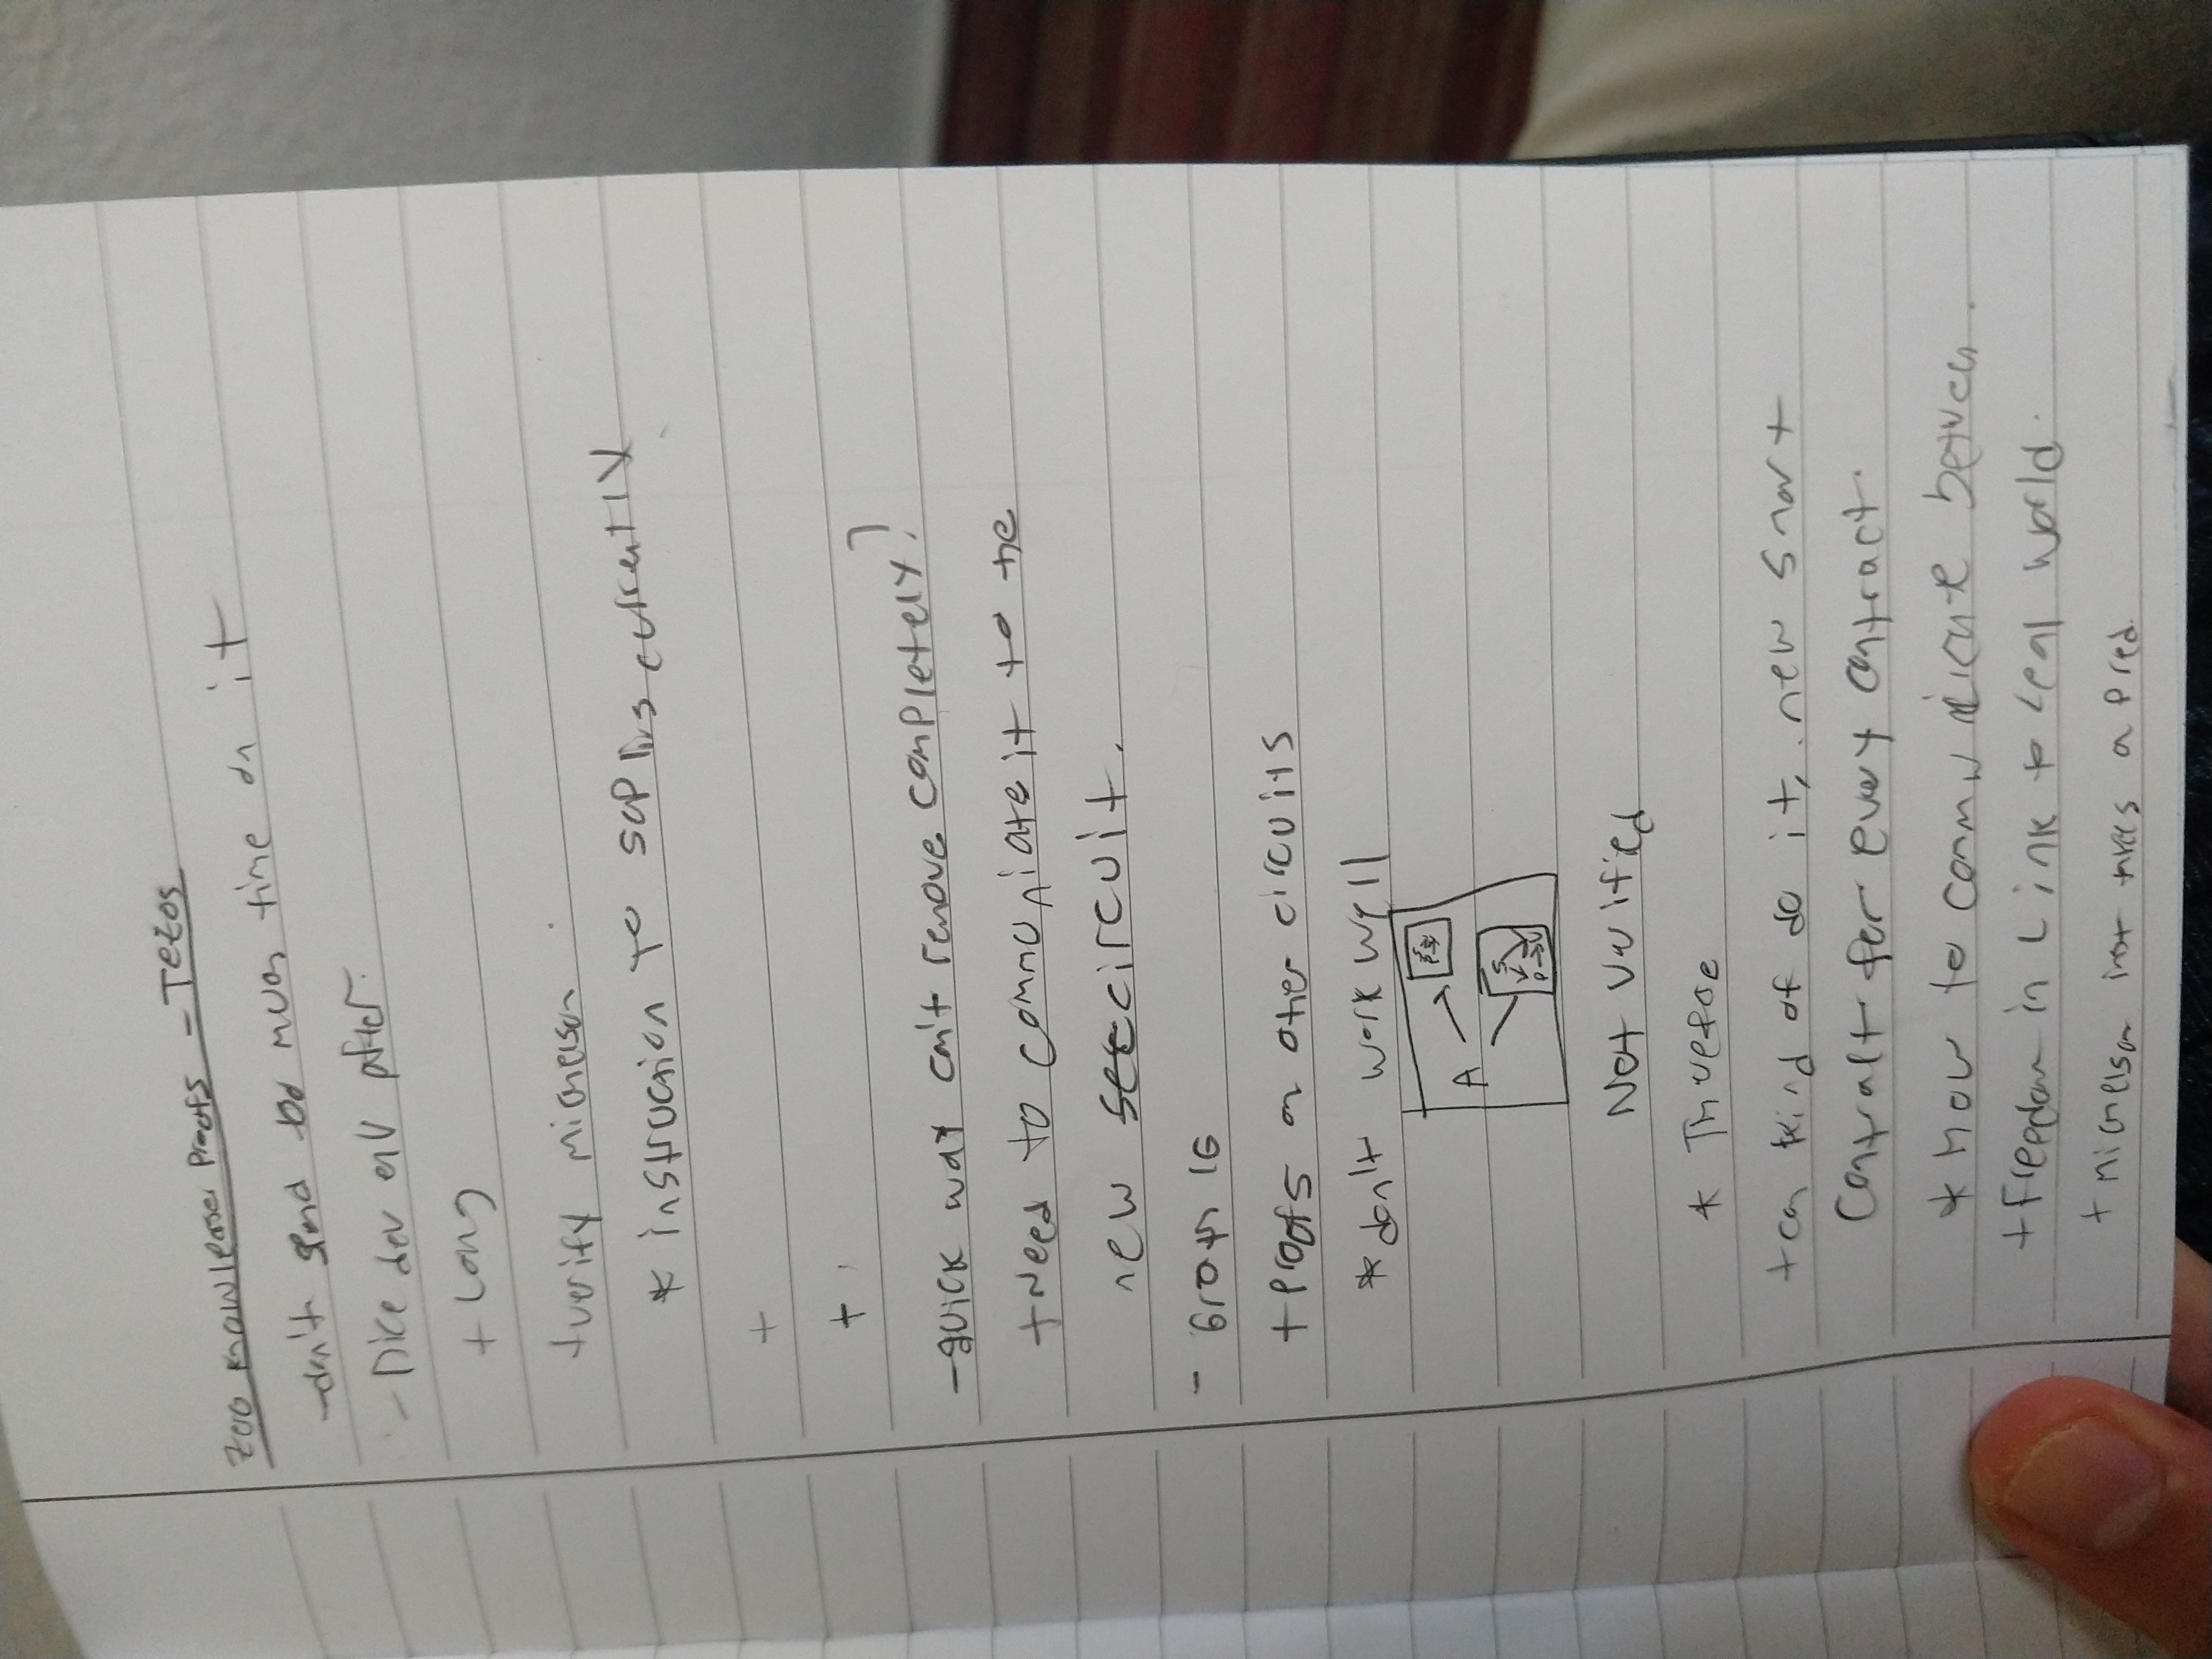 Zero Knowledge Proofs - Tezos
- don't spend too much time on it
- Nice dev env after.
+ Long
+ verify michelson
* instruction to sapling currently
+
+
- quick way can't remove completely?
+ Need to communiate it to the
new circuit.
- Groth 16
+ Proofs on other circuits
* don't work well
A
S
P → V
Not verified
* Therefore
+ can kind of do it, new smart
Contract for every contract.
* how to communicate between.
+ freedom in Link to real world.
+ michelson inst takes a pred.